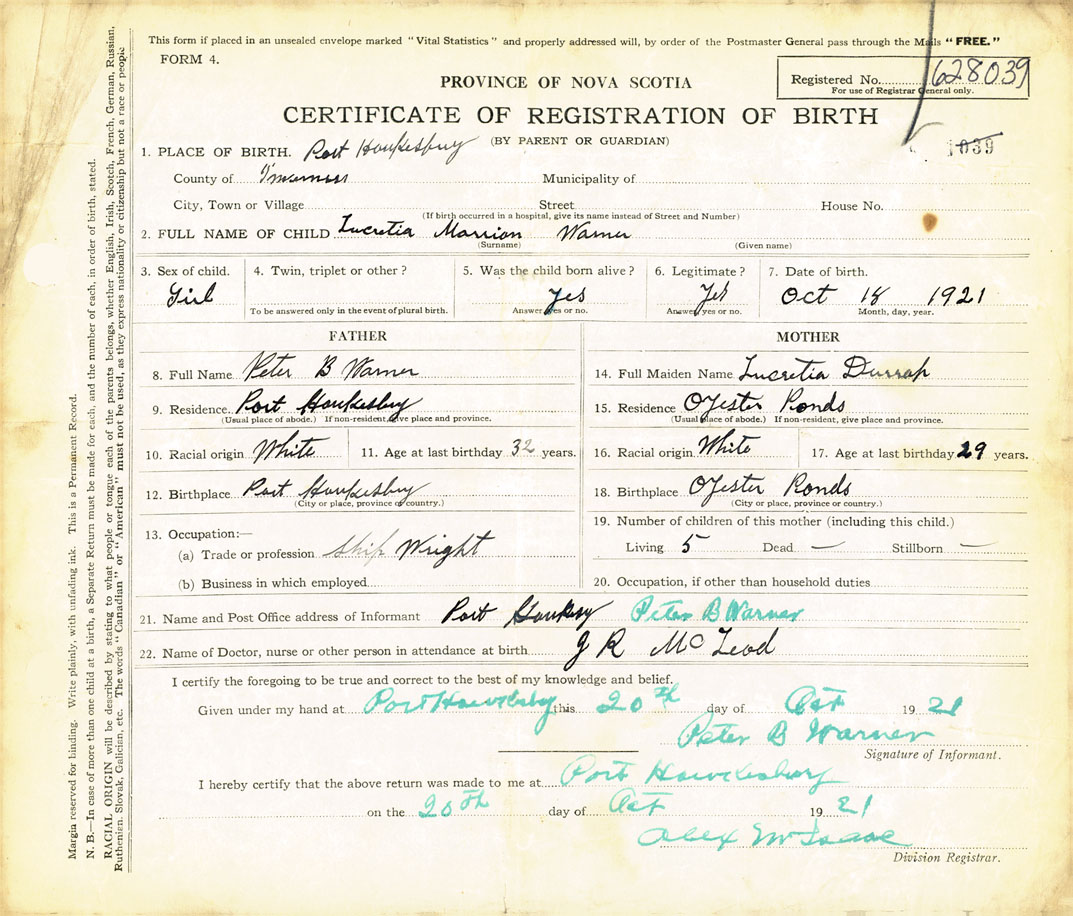 This form if placed in an unsealed envelope marked "Vital Statistics" and properly addressed will, by order of the Postmaster General pass through the Mails "FREE."
FORM 4.
PROVINCE OF NOVA SCOTIA
Registered No. 628039
For use of Registrar General only.
CERTIFICATE OF REGISTRATION OF BIRTH
(BY PARENT OR GUARDIAN)
1039
1. PLACE OF BIRTH. Port Hawkesbury
County of Inverness Municipality of
City, Town or Village Street House No.
(If birth occurred in a hospital, give its name instead of Street and Number)
2. FULL NAME OF CHILD Lucretia Marrion Warner
(Surname) (Given name)
3. Sex of child. 4. Twin, triplet or other? 5. Was the child born alive? 6. Legitimate? 7. Date of birth.
Girl Yes Yes Oct 18 1921
To be answered only in the event of plural birth. Answer yes or no. Answer yes or no. Month, day, year.
FATHER MOTHER
8. Full Name Peter B Warner
9. Residence Port Hawkesbury
(Usual place of abode.) If non-resident, give place and province.
10. Racial origin White 11. Age at last birthday 32 years.
12. Birthplace Port Hawkesbury
(City or place, province or country.)
13. Occupation:—
(a) Trade or profession Ship Wright
(b) Business in which employed
14. Full Maiden Name Lucretia
15. Residence Oyster Ponds
(Usual place of abode.) If non-resident, give place and province.
16. Racial origin White 17. Age at last birthday 29 years.
18. Birthplace Oyster Ponds
(City or place, province or country.)
19. Number of children of this mother (including this child.)
Living 5 Dead — Stillborn —
20. Occupation, if other than household duties
21. Name and Post Office address of Informant Port Peter B Warner
22. Name of Doctor, nurse or other person in attendance at birth J R McLeod
I certify the foregoing to be true and correct to the best of my knowledge and belief.
Given under my hand at Port Hawkesby this 20th day of Oct 1921
Peter B Warner
Signature of Informant.
I hereby certify that the above return was made to me at Port Hawkesbury
on the 20th day of Oct 1921
Alex McIsaac
Division Registrar.
Margin reserved for binding. Write plainly, with unfading ink. This is a Permanent Record.
N. B.—In case of more than one child at a birth, a Separate Return must be made for each, and the number of each, in order of birth, stated.
RACIAL ORIGIN will be described by stating to what people or tongue each of the parents belongs, whether English, Irish, Scotch, French, German, Russian,
Ruthenian, Slovak, Galician, etc. The words "Canadian" or "American" must not be used, as they express nationality or citizenship but not a race or people